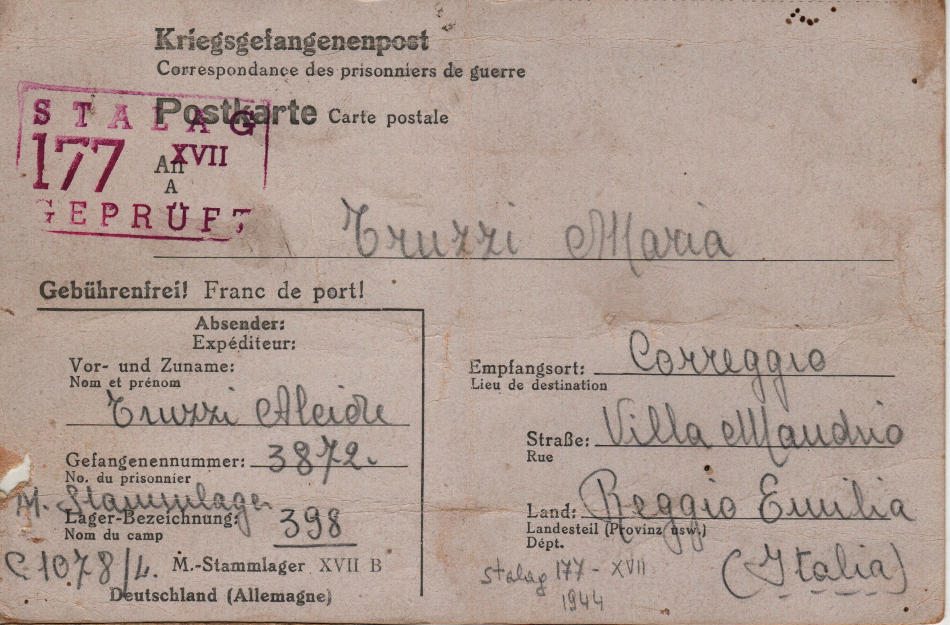 Kriegsgefangenenpost
Correspondance des prisonniers de guerre
Postkarte Carte postale
STALAG
177 XVII
GEPRÜFT
An
A
Truzzi Maria
Gebührenfrei! Franc de port!
Absender:
Expéditeur:
Vor- und Zuname:
Nom et prénom
Truzzi Alcide
Gefangenennummer: 3872.
No. du prisonnier
M. Stammlager
Lager-Bezeichnung: 398
Nom du camp
C. 1078/4. M.-Stammlager XVII B
Deutschland (Allemagne)
Empfangsort: Correggio
Lieu de destination
Straße: Villa Mandrio
Rue
Land: Reggio Emilia
Landesteil (Provinz usw.)
Dépt.
(Italia)
stalag 177 - XVII
1944